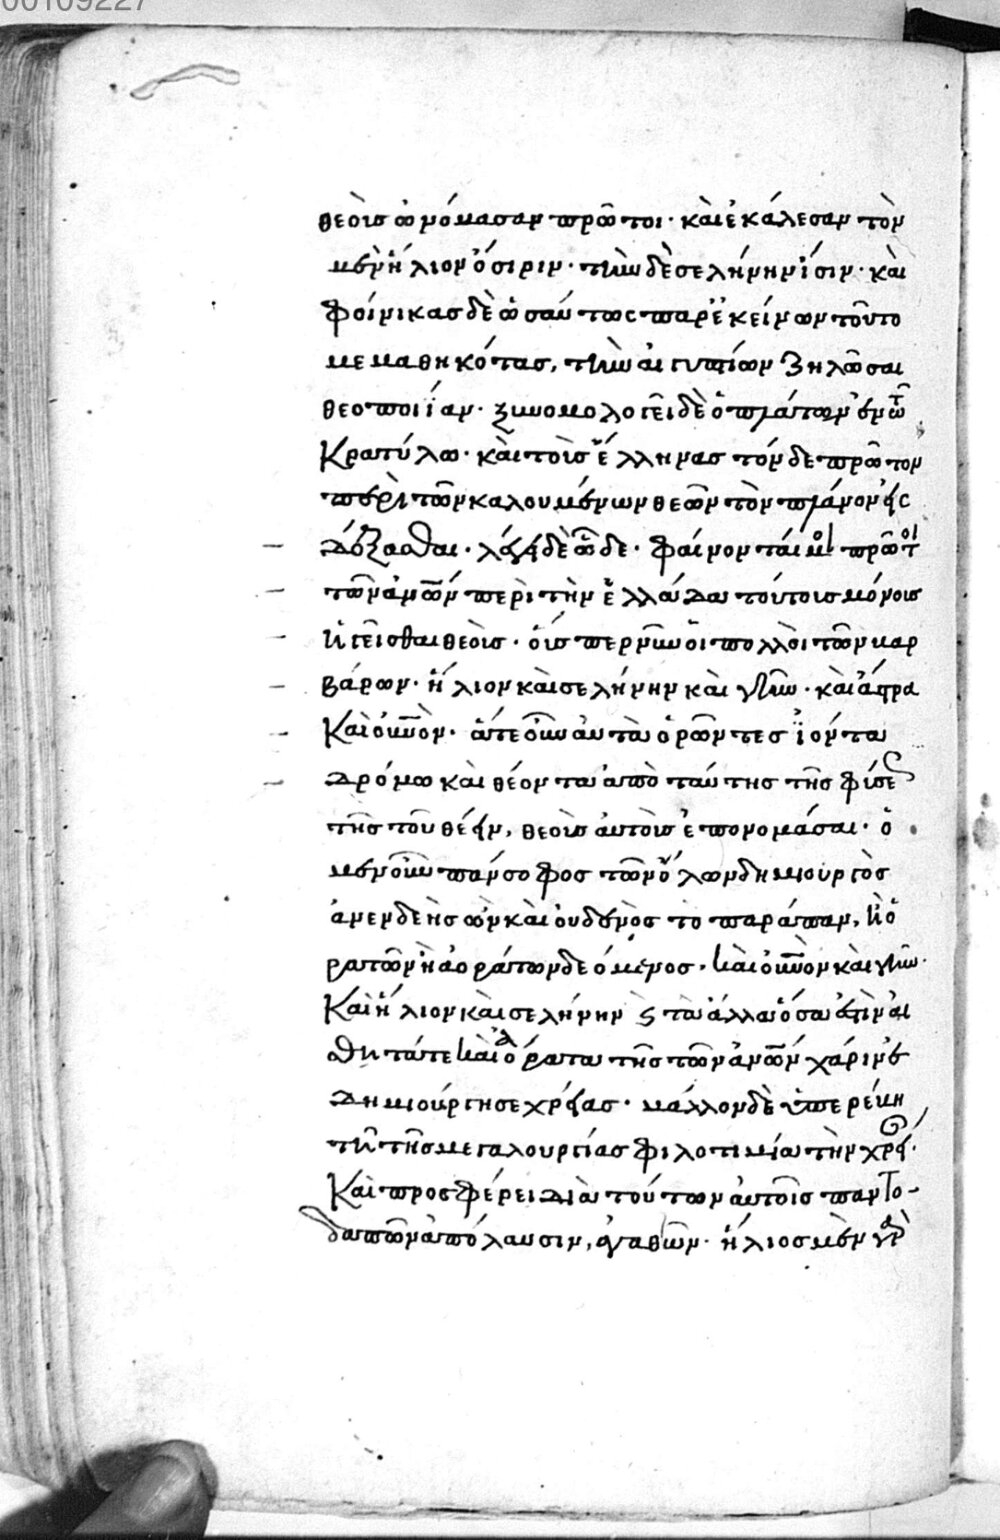 00109227
θεοὺς ὠνόμασαν πρῶτοι· καὶ ἐκάλεσαν τὸν
μὲν ἥλιον ὄσιριν· τὴν δὲ σελήνην ἶσιν· καὶ
φοίνικας δὲ ὡσαύτως παρ' ἐκείνων τοῦτο
μεμαθηκότας, τὴν αἰγυπτίων ζηλῶσαι
θεοποιΐαν· ξυνομολογεῖ δὲ ὁ πλάτων ἐν τῶ
Κρατύλω· καὶ τοὺς ἕλληνας τόνδε πρῶτον
περὶ τῶν καλουμένων θεῶν τὸν πλάνον εἰς
δέξασθαι· λέγει δὲ ὧδε· φαίνονταί μοι πρῶτοι
τῶν ἀνῶν περὶ τὴν ἑλλάδα τούτους μόνους
ἡγεῖσθαι θεοὺς· οὕσπερ νῦν οἱ πολλοὶ τῶν βαρ
βάρων· ἥλιον καὶ σελήνην καὶ γῆν· καὶ ἄστρα
Καὶ οὐνὸν· ἅτε οὖν αὐτὰ ὁρῶντες ἰόντα
δρόμω καὶ θέοντα ἀπὸ ταύτης τῆς φύσεως
τῆς τοῦ θέειν, θεοὺς αὐτοὺς ἐπονομάσαι· ὁ
μὲν οὖν πάνσοφος τῶν ὅλων δημιουργὸς
ἀνενδεὴς ὢν καὶ οὐδενὸς τὸ παράπαν, ἢ ὁ
ρατῶν ἢ ἀοράτων δεόμενος· καὶ οὐνὸν καὶ γῆν·
Καὶ ἥλιον καὶ σελήνην καὶ τὰ ἄλλα ὅσα ἐστὶν αἰ
σθητά τε καὶ ὁρατα τῆς τῶν ἀνῶν χάριν ἐ
δημιούργησε χρείας· μᾶλλον δὲ ὑπερέβη
τῆ τῆς μεγαλουργίας φιλοτιμία τὴν χρεί·
Καὶ προσφέρει διὰ τούτων αὐτοῖς παντο-
δαπῶν ἀπόλαυσιν, ἀγαθῶν· ἥλιος μὲν γὰρ